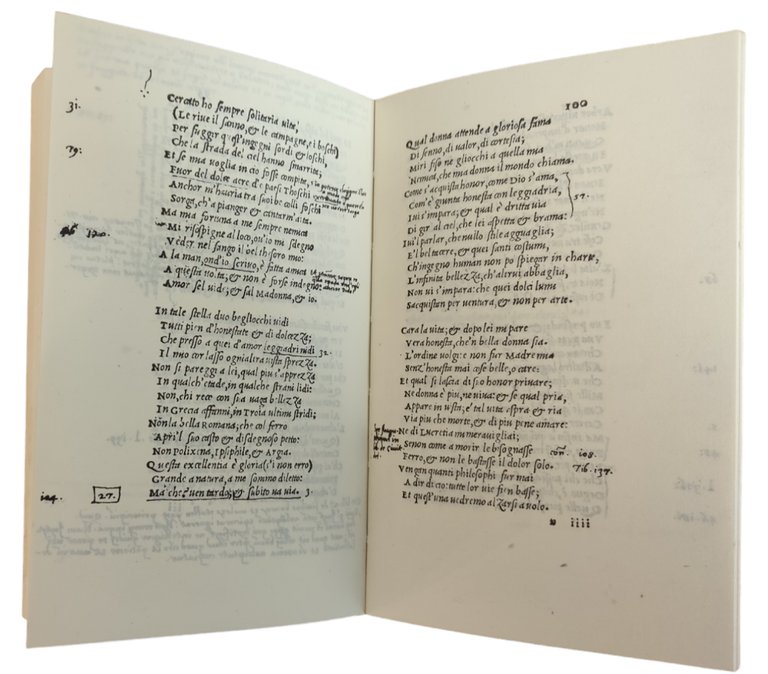 31.
Cercato ho sempre solitaria uita,
(Le riue il sanno, & le campagne, e i boschi)
Per fuggir quest'ingegni sordi & loschi,
79.
Che la strada del ciel hanno smarrita:
Et se mia uoglia in cio fosse compita,
Fuor del dolce aere d'e paesi Thoschi
Anchor m'hauria tra suoi be colli foschi
Sorga, ch'a pianger & cantar m'aita.
Ma mia fortuna a me sempre nemica
120.
Mi risospigne al loco, ou'io mi sdegno
Veder nel fango il bel thesoro mio:
A la man, ond'io scriuo, è fatta amica
A questa uolta; & non è forse indegno:
Amor sel uide; & sal Madonna, & io.
In tale stella duo begliocchi uidi
Tutti pien d'honestate & di dolcezza;
Che presso a quei d'amor leggiadri nidi 32.
Il mio cor lasso ognialtra uista sprezza.
Non si pareggi a lei, qual piu s'apprezza
In qualch'etade, in qualche strani lidi:
Non, chi reco con sua uaga bellezza
In Grecia affanni, in Troia ultimi stridi;
Nõ la bella Romana; che col ferro
Apri'l suo casto & disdegnoso petto:
Non Polixena, Isiphile, & Argia.
Questa excellentia è gloria (s'i non erro)
Grande a natura, a me sommo diletto:
124. 27. Ma che? uen tardo; & subito na uia. 3.
100
Qual donna attende a gloriosa fama
Di senno, di ualor, di cortesia;
Miri fiso ne gliocchi a quella mia
Nemica, che mia donna il mondo chiama.
Come s'acquista honor, come Dio s'ama,
Com'è giunta honesta con leggiadria,
37.
Iui s'impara; & qual è dritta uia
Di gir al ciel, che lei aspetta & brama:
Iui'l parlar, che nullo stile agguaglia;
E'l bel tacere, & quei santi costumi,
Ch'ingegno human non po spiegar in charte.
L'infinita bellezza, ch'altrui abbaglia,
Non ui s'impara: che quei dolci lumi
S'acquistan per uentura, & non per arte.
Cara la uita; & dopo lei mi pare
Vera honesta, che'n bella donna sia.
L'ordine uolgi: e non fur Madre mia
Senz'honesta mai cose belle, o care:
Et qual si lascia di suo honor priuare;
Ne donna è piu, ne uiua: & se qual pria,
Appare in uista; è tal uita aspra & ria
Via piu che morte, & di piu pene amare:
Ne di Lucretia mi merauigliai;
Senon come a morir le bisognasse 108.
Ferro, & non le bastasse il dolor solo. Tib. 137.
Vengan quanti philosophi fur mai
A dir di cio: tutte lor uie fien basse;
Et quest'una uedremo alzarsi a uolo.
n iiii